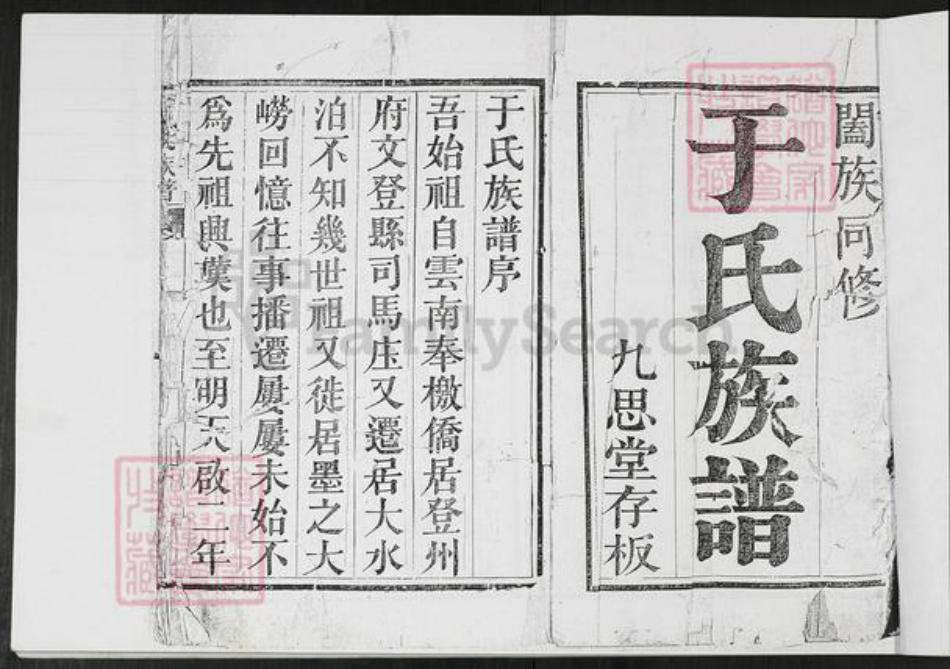 闔族同修
于氏族譜
九思堂存板
于氏族譜序
吾始祖自雲南奉檄僑居登州
府文登縣司馬庄又遷居大水
泊不知幾世祖又徙居墨之大
嶗回憶往事播遷屢屢未始不
爲先祖興葉也至明天啟二年
FamilySearch